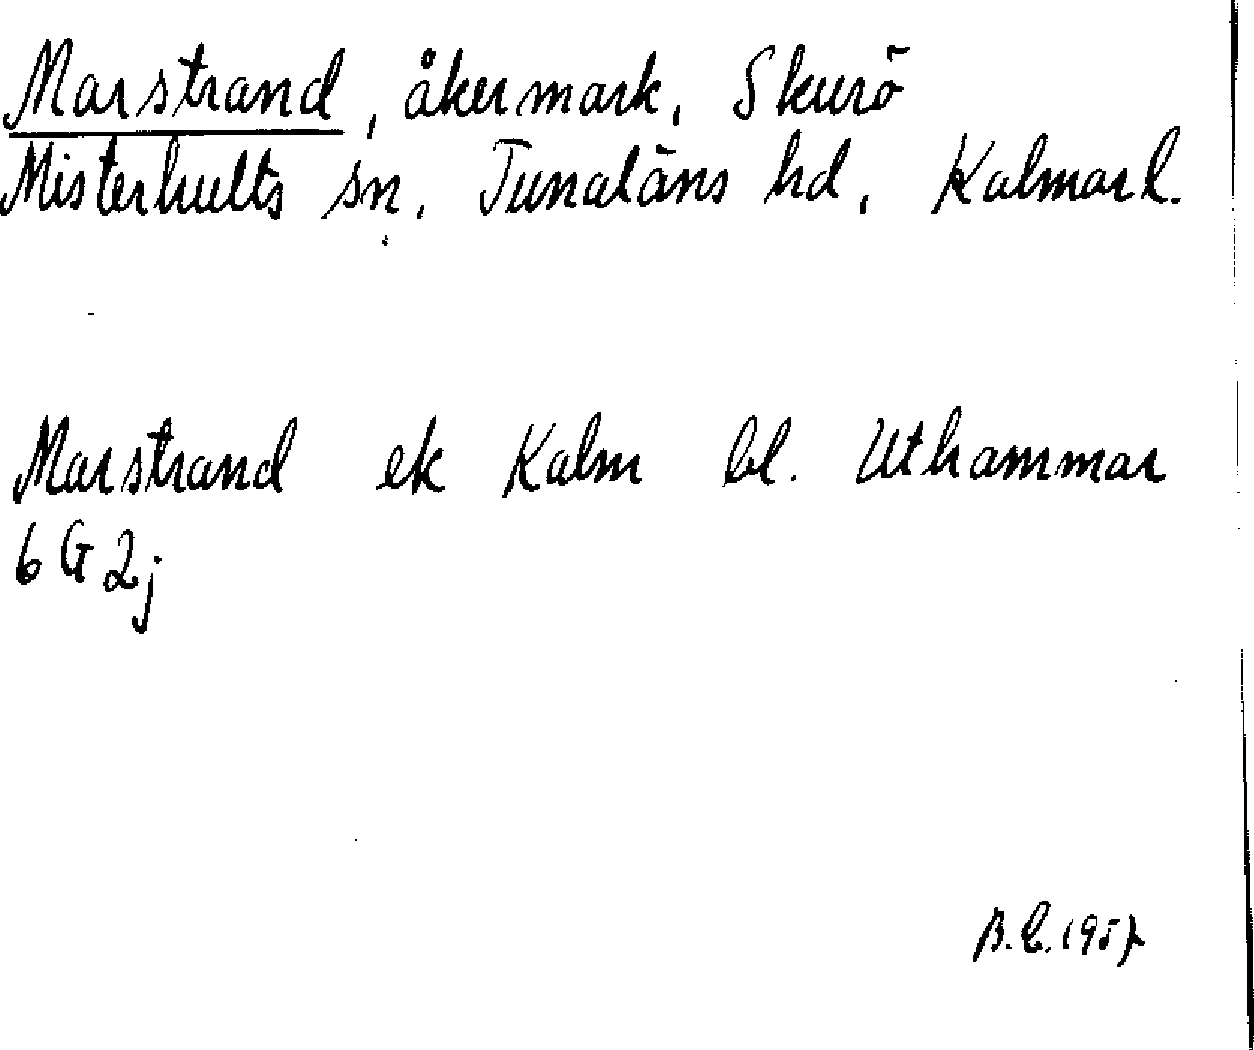 Marstrand, åkermark, Skurö
Misterhults sn, Tunaläns hd, Kalmar l.
Marstrand ek Kalm bl. Uthammar
6G2j
B.E. 1957